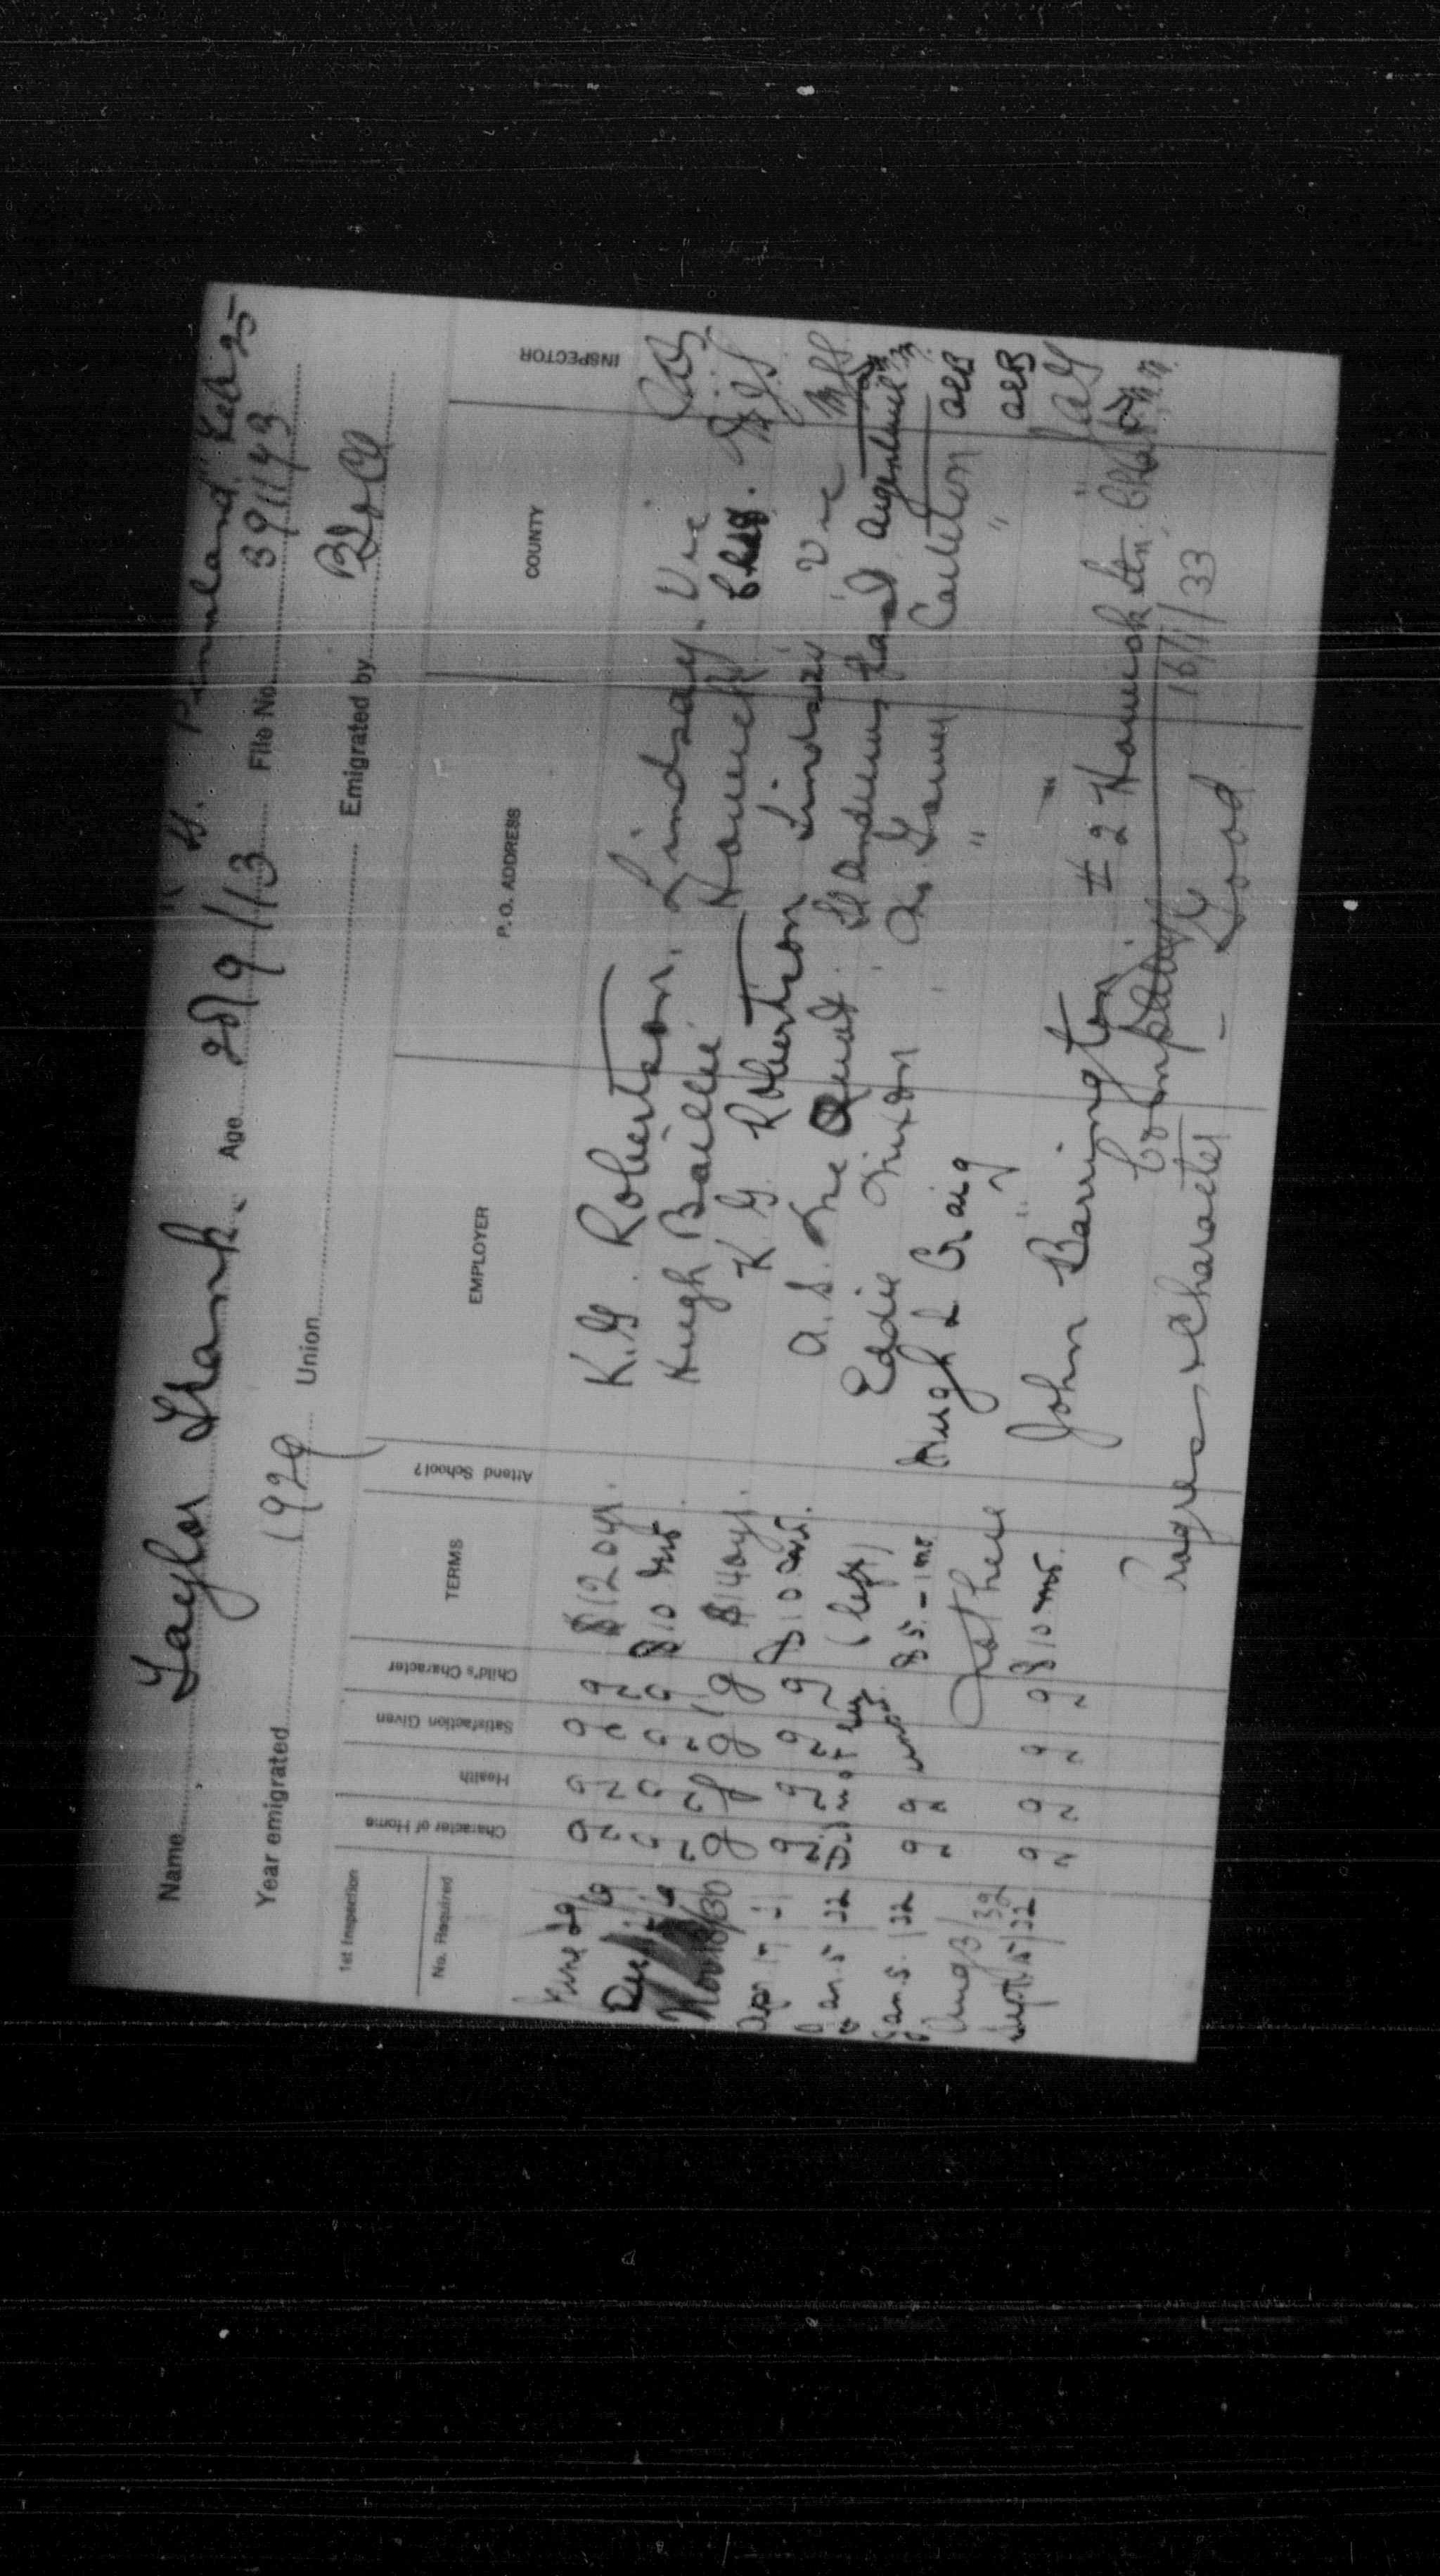 S.S. Pennland Feb 25
Name Taylor Frank. Age 28/9/13 File No. 391143
Year emigrated 1929 Union Emigrated by
1st Inspection
No. Required
Character of Home
Health
Satisfaction Given
Child's Character
TERMS
Attend School?
EMPLOYER
P.O. ADDRESS
COUNTY
INSPECTOR
29 g g g g $120 yr. K.G. Robertson, Lindsay. Vic
Dec g g g g $10 mo. Hugh Baillie Howick
Nov 10/30 g g g g $140 yr. K G Robertson Lindsay Vic
Apr 17 31 g g g g $10 mo. A. S. Argenteuil
Jan. 5 /32 Did not see (left) Eddie Carleton
Jan. 5. /32 g g $5. – 1 mo. Hugh L Craig " "
Aug 3/32 Not here "
Sept 15/32 g g g g $10 mo. John Barrington #2 Howick Stn.
16/1/33
Progress & Character – Good